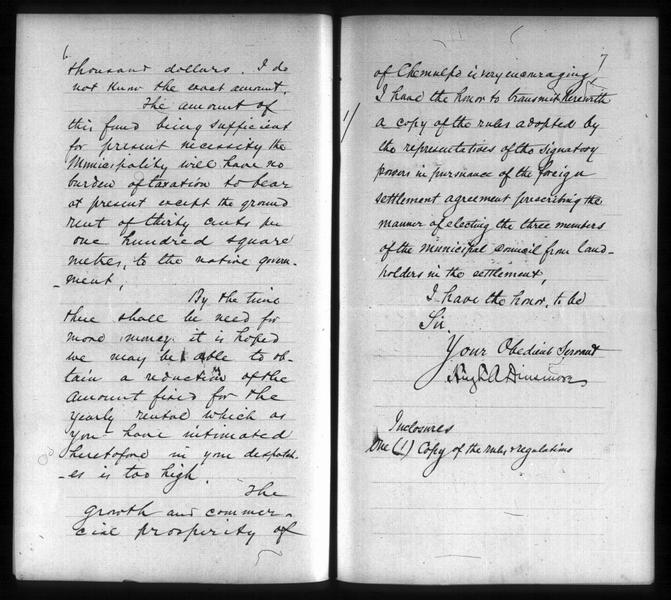 6
thousand dollars. I do
not know the exact amount.
The amount of
this fund being sufficient
for present necessity the
Municipality will have no
burden of taxation to bear
at present except the ground
rent of thirty cents per
one hundred square
metres, to the native govern-
-ment,
By the time
there shall be need for
more money it is hoped
we may be able to ob-
tain a reduction of the
amount fixed for the
yearly rental which as
you have intimated
heretofore in your despatch-
-es is too high.
The
growth and commer-
cial prosperity of
7
of Chemulpo is very encouraging!
1/ I have the honor to transmit herewith
a copy of the rules adopted by
the representatives of the signatory
powers in pursuance of the foreign
settlement agreement prescribing the
manner of electing the three members
of the municipal council from land-
holders in the settlement,
I have the honor, to be
Sir
Your Obedient Servant
Hugh A Dinsmore
Inclosures
One (1) Copy of the rules & regulations